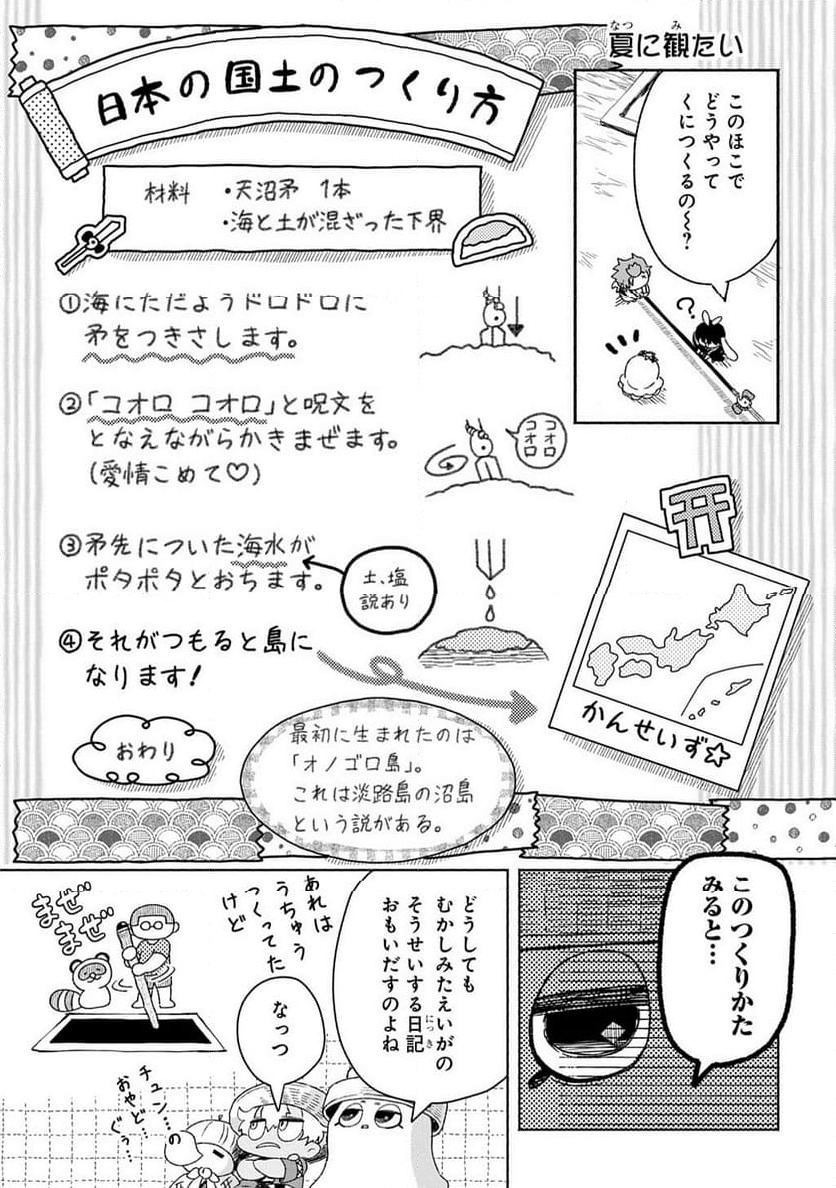 夏に観たい
なつ
み
このほこで
どうやって
くにつくるの〜?
?
日本の国土のつくり方
材料 ・天沼矛 1本
・海と土が混ざった下界
①海にただようドロドロに
矛をつきさします。
②「コオロ コオロ」と呪文を
となえながらかきまぜます。
(愛情こめて♡)
コオロ
コオロ
③矛先についた海水が
ポタポタとおちます。
土、塩
説あり
④それがつもると島に
なります!
かんせいず☆
おわり
最初に生まれたのは
「オノゴロ島」。
これは淡路島の沼島
という説がある。
このつくりかた
みると…
どうしても
むかしみたえいがの
そうせいする日記
にっき
おもいだすのよね
なっつ
あれは
うちゅう
つくってた
けど
まぜ
まぜ
チュン…の
おやど…
ぐぅ…